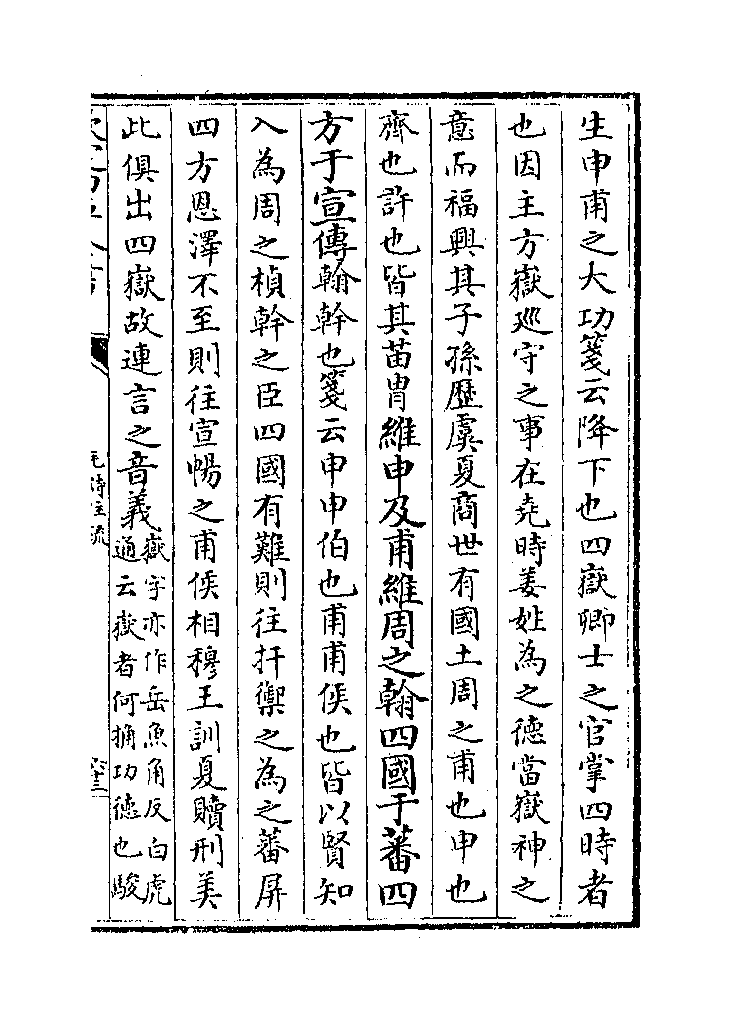 生申甫之大功箋云降下也四嶽卿士之官掌四時者
也因主方嶽廵守之事在堯時姜姓為之德當嶽神之
意而福興其子孫歷虞夏商世有國土周之甫也申也
齊也許也皆其苗胄維申及甫維周之翰四國于蕃四
方于宣傳翰幹也箋云申申伯也甫甫侯也皆以賢知
入為周之楨幹之臣四國有難則往扞禦之為之蕃屏
四方恩澤不至則往宣暢之甫侯相穆王訓夏贖刑美
此俱出四嶽故連言之音義嶽字亦作岳魚角反白虎
通云嶽者何桷功德也駿
毛詩注疏